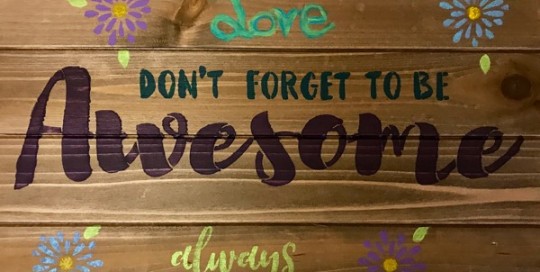 dore
DON'T FORGET TO BE
Awesome
always